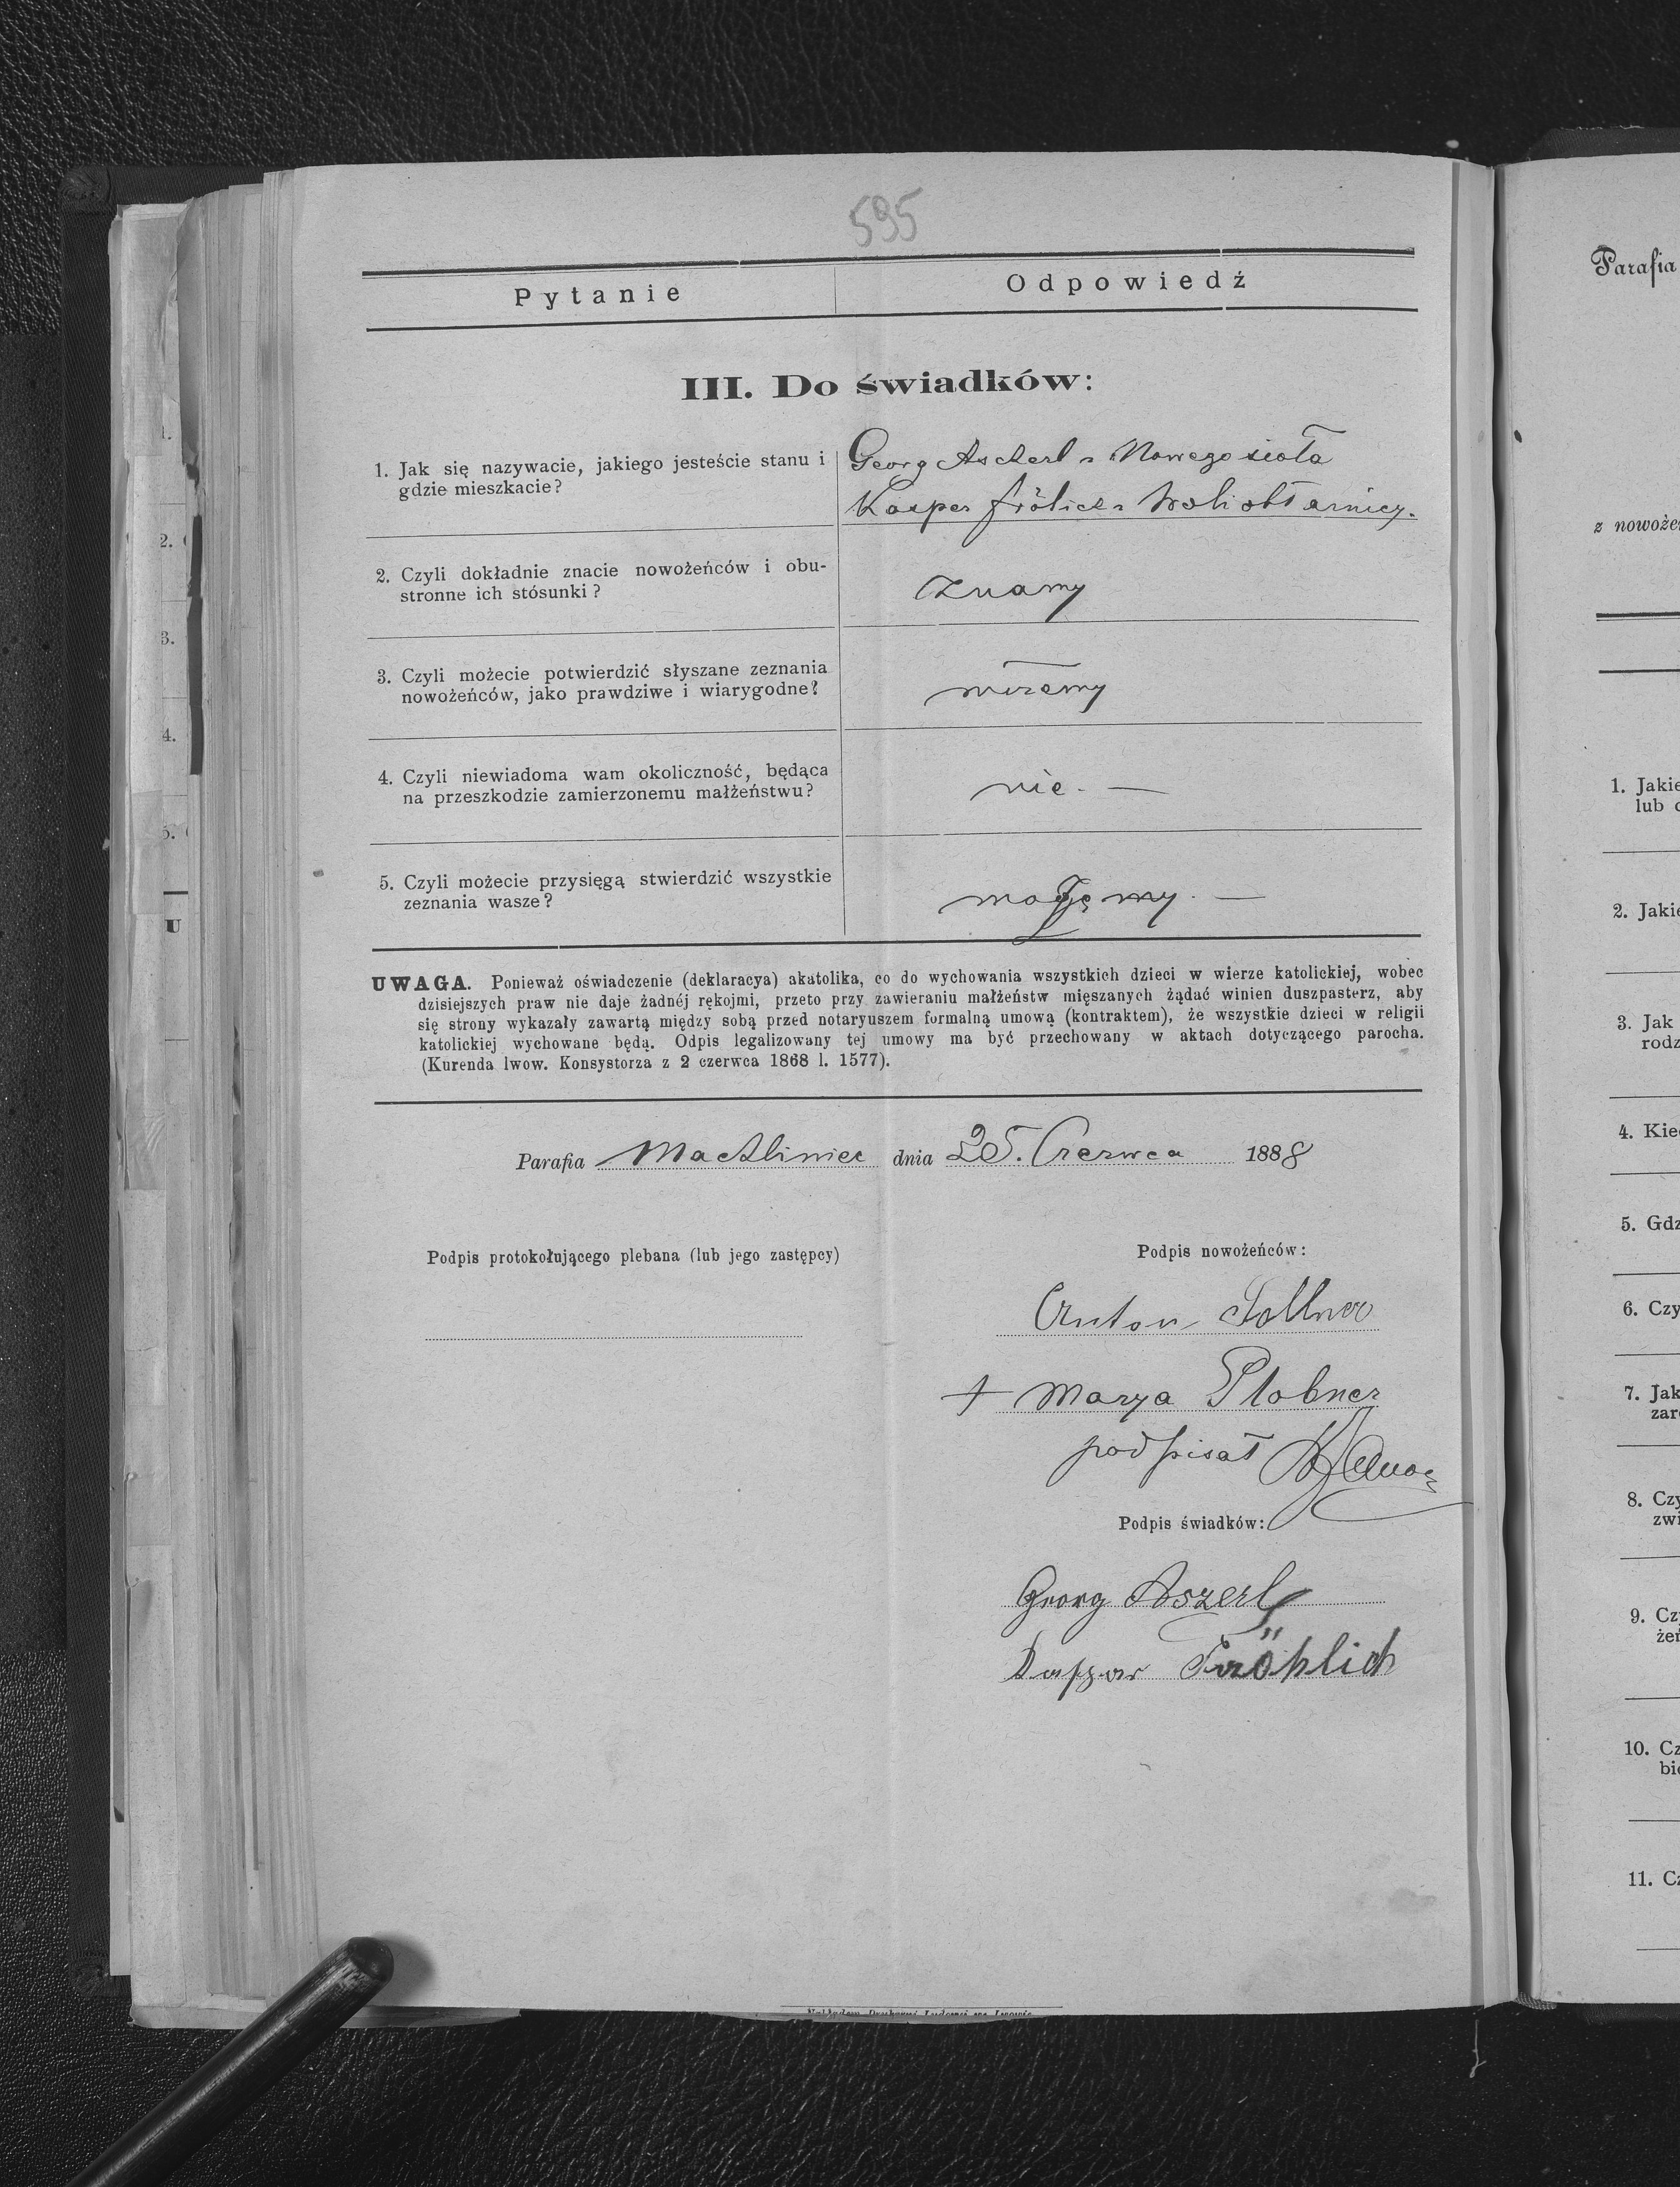 595
Pytanie
Odpowiedź
III. Do świadków:
1. Jak się nazywacie, jakiego jesteście stanu i
gdzie mieszkacie?
Georg Ascherl z Nowegosioła
Kasper Frölich z Woli obłarnicy.
2. Czyli dokładnie znacie nowożeńców i obu-
stronne ich stósunki?
Znamy
3. Czyli możecie potwierdzić słyszane zeznania
nowożeńców, jako prawdziwe i wiarygodne?
4. Czyli niewiadoma wam okoliczność, będąca
na przeszkodzie zamierzonemu małżeństwu?
nie. —
5. Czyli możecie przysięgą stwierdzić wszystkie
zeznania wasze?
możemy. —
UWAGA. Ponieważ oświadczenie (deklaracya) akatolika, co do wychowania wszystkich dzieci w wierze katolickiej, wobec
dzisiejszych praw nie daje żadnéj rękojmi, przeto przy zawieraniu małżeństw mięszanych żądać winien duszpasterz, aby
się strony wykazały zawartą między sobą przed notaryuszem formalną umową (kontraktem), że wszystkie dzieci w religii
katolickiej wychowane będą. Odpis legalizowany tej umowy ma być przechowany w aktach dotyczącego parocha.
(Kurenda lwow. Konsystorza z 2 czerwca 1868 l. 1577).
Parafia Machliniec dnia 25. Czerwca 1888
Podpis protokołującego plebana (lub jego zastępcy)
Podpis nowożeńców:
Anton Sollner
+ Marya Plobner
podpisał
Podpis świadków:
Georg Aszerl
Kaspar Fröhlich
Nakładem Drukarni Ludowej we Lwowie
Parafia
z nowoże
1. Jakie
lub
2. Jakie
3. Jak
rodz
4. Kie
5. Gdz
6. Czy
7. Jak
zar
8. Czy
zwi
9. Cz
żeń
10. Cz
bie
11. Cz